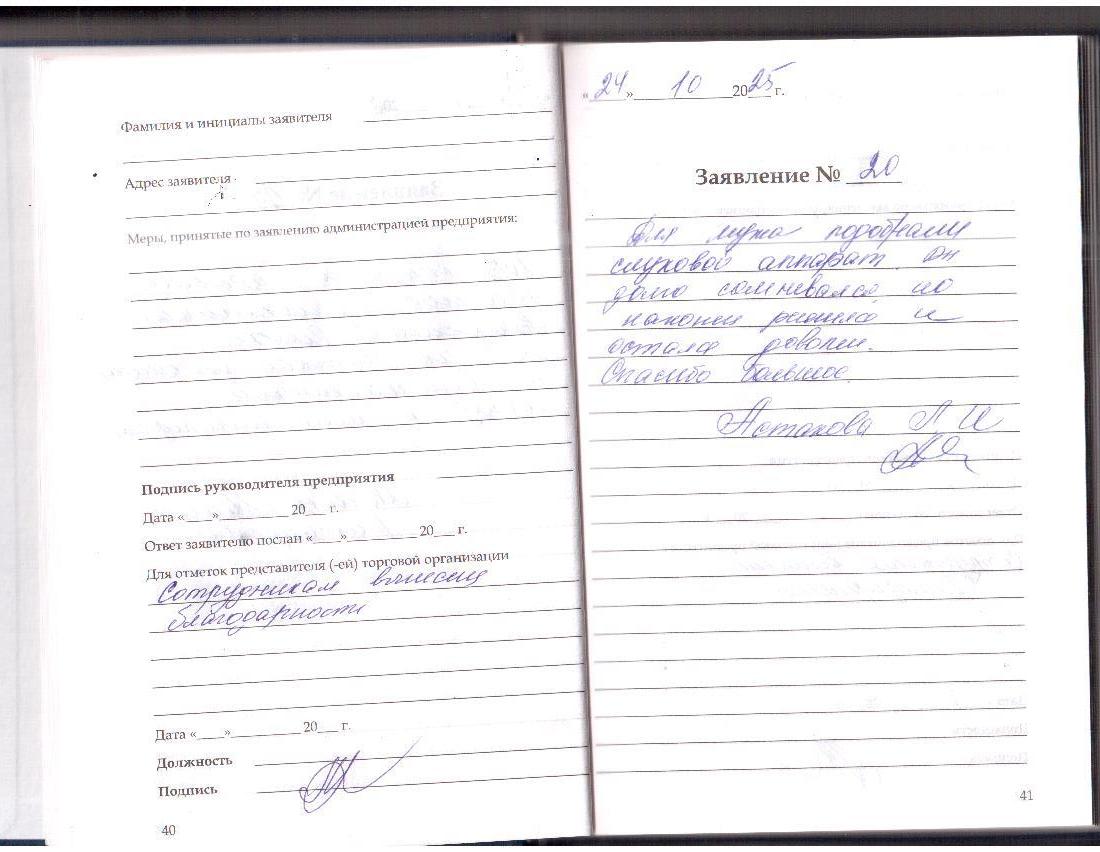 Фамилия и инициалы заявителя
Адрес заявителя
Меры, принятые по заявлению администрацией предприятия:
Подпись руководителя предприятия
Дата «____»__________ 20___ г.
Ответ заявителю послан «____»__________ 20___ г.
Для отметок представителя (-ей) торговой организации
Сотрудникам вынесены
благодарности
Дата «____»__________ 20___ г.
Должность
Подпись
40
«24» 10 2025 г.
Заявление № 20
Для мужа подобрали
слуховой аппарат. Он
долго сомневался, но
наконец решился и
остался доволен.
Спасибо большое.
Астахова Л И
41